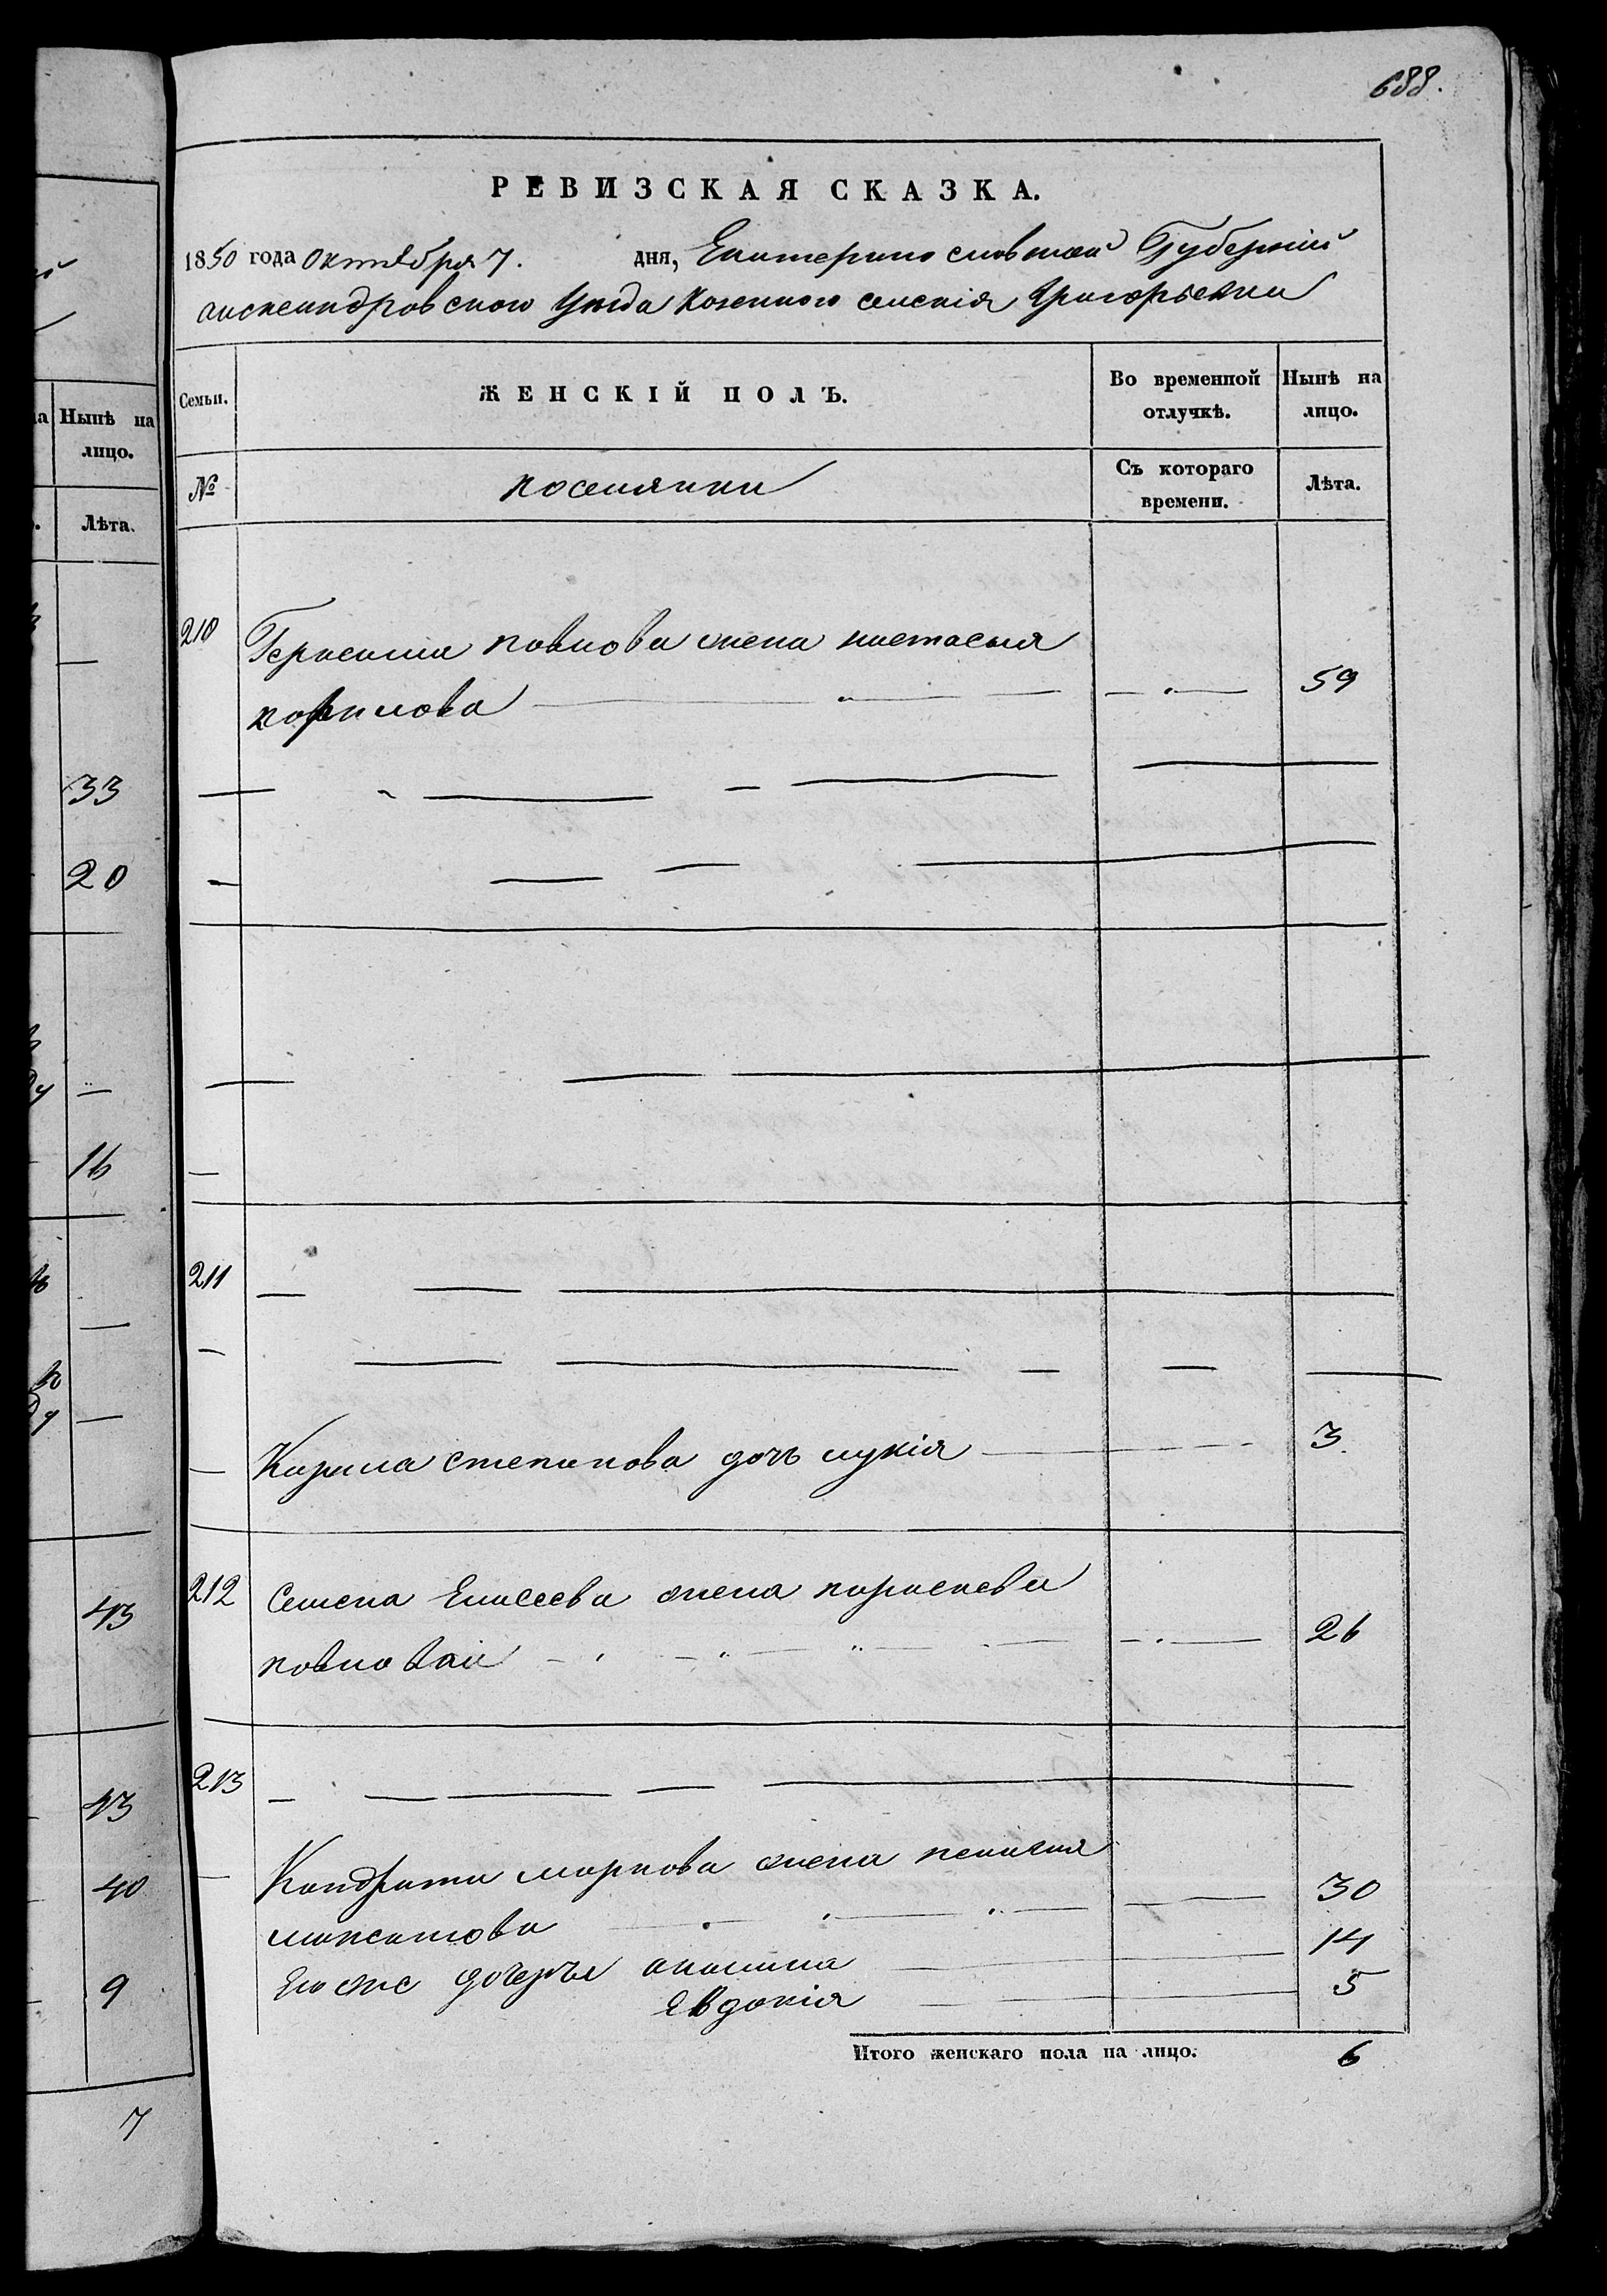 688.
РЕВИЗСКАЯ СКАЗКА.
1850 года октября 7. дня, Екатеринославской Губерніи
александровскаго Уезда Казеннаго селенія Григорьевки
Семьи. ЖЕНСКІЙ ПОЛЪ. Во временной отлучкѣ. Нынѣ на лицо.
№ поселянки Съ котораго времени. Лѣта.
210 Герасима павлова жена настасья
корнилова 59
211
Карпа степанова дочь лукія 3
212 Семена Елисеева жена параскева
павловаи 26
213
Кондрата маркова жена пелагия
максимова 30
Его же дочерьи акилина 14
Евдокія 5
Итого женскаго пола на лицо. 6
Нынѣ на
лицо.
Лѣта.
33
20
16
43
43
40
9
7